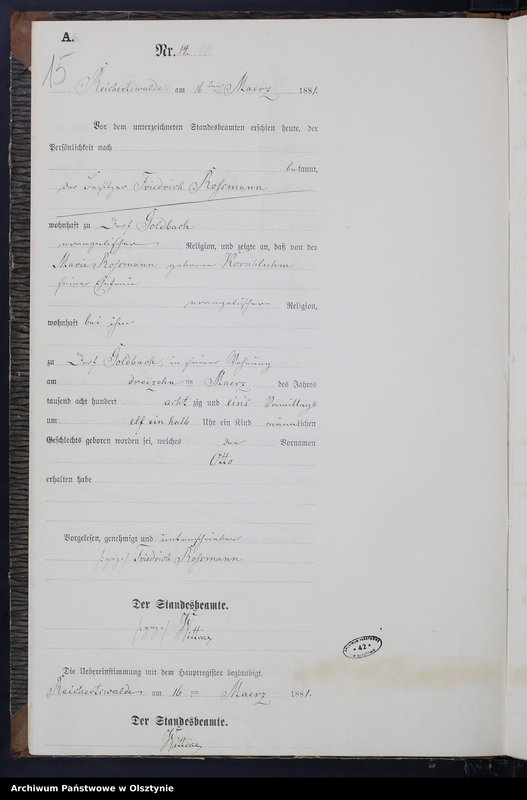 A.
15
Nr. 14.
Reichertswalde am 16 ten Maerz 1881.
Vor dem unterzeichneten Standesbeamten erschien heute, der
Persönlichkeit nach
bekannt,
der Besitzer Friedrich Roßmann
wohnhaft zu Dorf Goldbach
evangelischer Religion, und zeigte an, daß von der
Marie Roßmann geborene Kornbluhm
seiner Ehefrau
evangelischer Religion,
wohnhaft bei ihm
zu Dorf Goldbach, in seiner Wohnung
am dreizehn ten Maerz des Jahres
tausend acht hundert acht zig und eins Vormittags
um elf ein halb Uhr ein Kind männlichen
Geschlechts geboren worden sei, welches den Vornamen
Otto
erhalten habe
Vorgelesen, genehmigt und unterschrieben
(gez.) Friedrich Roßmann
Der Standesbeamte.
(gez.)
Die Uebereinstimmung mit dem Hauptregister beglaubigt.
Reichertswalde am 16 ten Maerz 1881.
Der Standesbeamte.
42
Archiwum Państwowe w Olsztynie